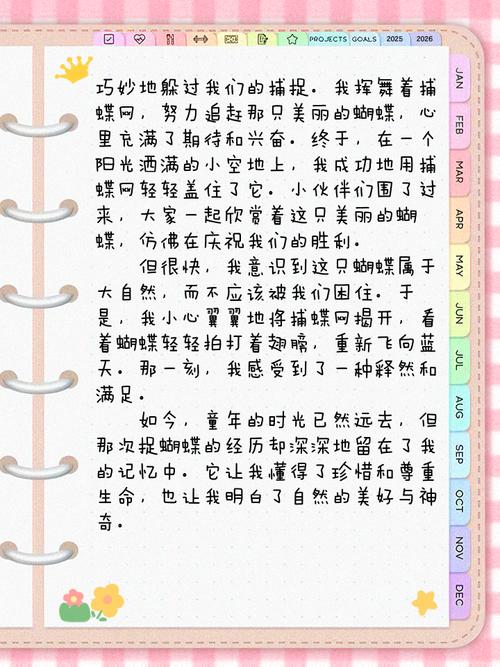 PROJECTS GOALS 2025 2026
巧妙地躲过我们的捕捉。我挥舞着捕
蝶网，努力追赶那只美丽的蝴蝶，心
里充满了期待和兴奋。终于，在一个
阳光洒满的小空地上，我成功地用捕
蝶网轻轻盖住了它。小伙伴们围了过
来，大家一起欣赏着这只美丽的蝴
蝶，仿佛在庆祝我们的胜利。
但很快，我意识到这只蝴蝶属于
大自然，而不应该被我们困住。于
是，我小心翼翼地将捕蝶网揭开，看
着蝴蝶轻轻拍打着翅膀，重新飞向蓝
天。那一刻，我感受到了一种释然和
满足。
如今，童年的时光已然远去，但
那次捉蝴蝶的经历却深深地留在了我
的记忆中。它让我懂得了珍惜和尊重
生命，也让我明白了自然的美好与神
奇。
JAN
FEB
MAR
APR
MAY
JUN
JUL
AUG
SEP
OCT
NOV
DEC